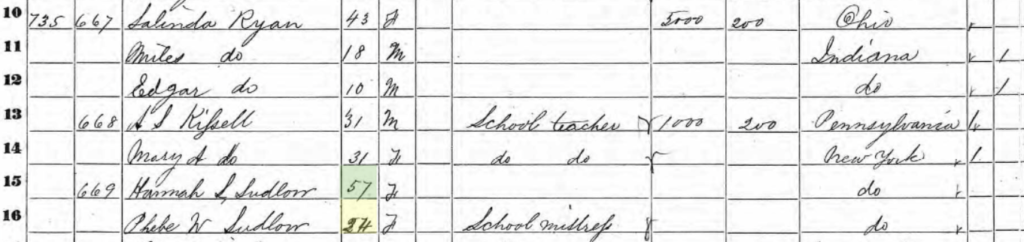 10 735 667 Salinda Ryan 43 F 5000 200 Ohio
11 Miles do 18 M Indiana 1
12 Edgar do 10 M do 1
13 668 A S Kissell 31 M School teacher 1000 200 Pennsylvania 1
14 Mary A do 31 F do do New York 1
15 669 Hannah S Sudlow 57 F do
16 Phebe W Sudlow 24 F School mistress do